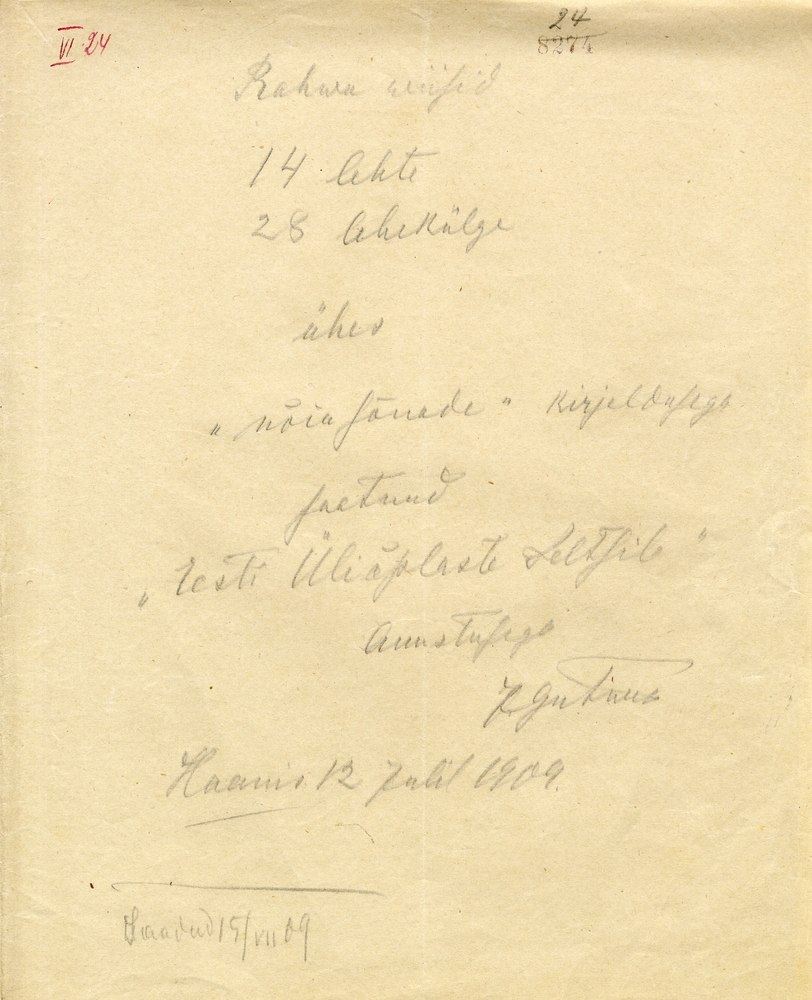 VI 24
24
8274
Rahwa wiisid
14 lehte
28 lehekülge
ühes
„nõia sõnade" kirjeldusega
saetnud
„Eesti Üliõplaste Seltsile"
Austusega
Haanis 12 Julil 1909.
Saadud 15/VII 09